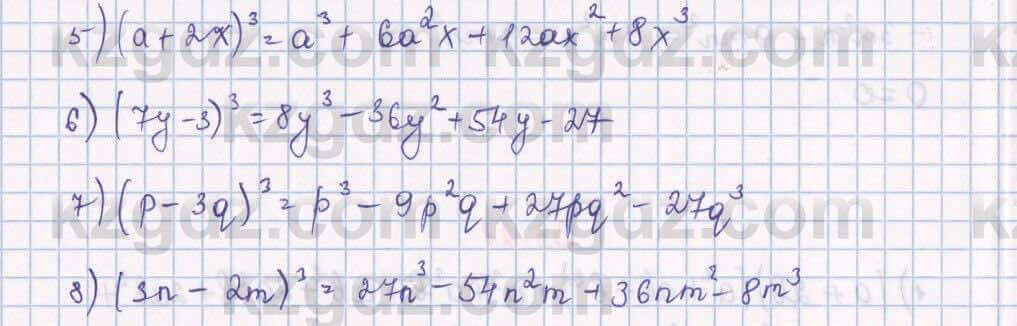 5) (a + 2x)³ = a³ + 6a²x + 12ax² + 8x³
6) (7y - 3)³ = 8y³ - 36y² + 54y - 27
7) (p - 3q)³ = p³ - 9p²q + 27pq² - 27q³
8) (3n - 2m)³ = 27n³ - 54n²m + 36nm² - 8m³